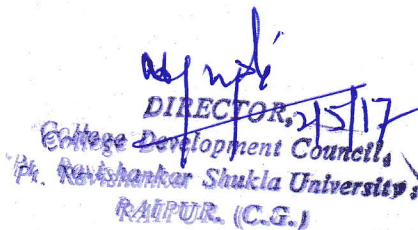 DIRECTOR, 2/5/17
College Development Council,
Pt. Ravishankar Shukla University,
RAIPUR. (C.G.)